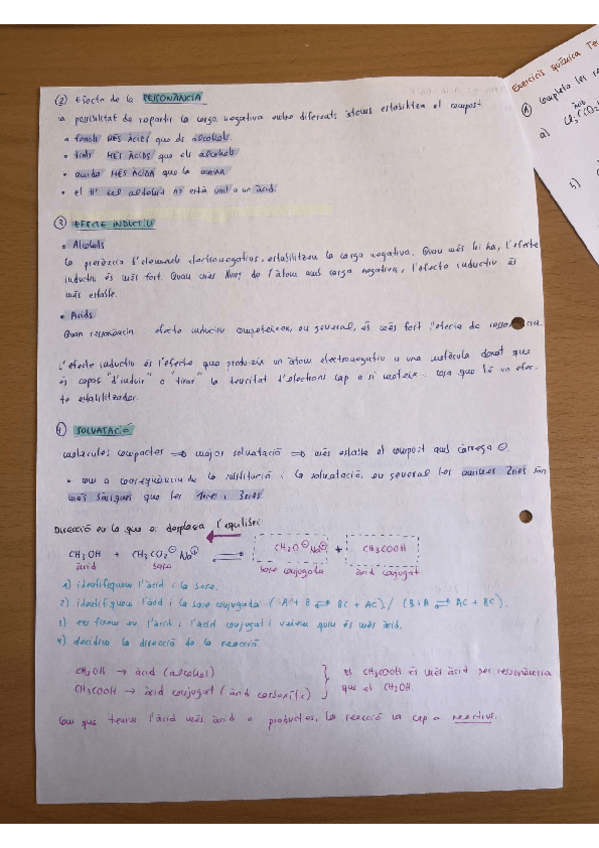 ② Efecte de la RESSONÀNCIA
possibilitat de repartir la carga negativa entre diferents àtoms estabilitza el compost
• fenols MÉS ÀCIDS que els alcohols.
• tiols MÉS ÀCIDS que els alcohols.
• MÉS ÀCIDA que la
• el H⁺ del no està unit a un àcid.
③ EFECTE INDUCTIU
• Alcohols
la presència d'elements electronegatius, estabilitzen la carga negativa. Quan més hi ha, l'efecte
inductiu és més fort. Quan més lluny de l'àtom amb carga negativa, l'efecte inductiu és
més estable.
• Àcids
Quan ressonància i efecte inductiu competeixen, en general, és més fort l'efecte de ressonància.
L'efecte inductiu és l'efecte que produeix un àtom electronegatiu a una molècula donat que
és capaç "d'induir" o "tirar" la densitat d'electrons cap a si mateix. cosa que té un efec-
te estabilitzador.
④ SOLVATACIÓ
molècules compactes ⟹ major solvatació ⟹ més estable el compost amb càrrega ⊖.
• com a conseqüència de la i la solvatació, en general les amines 2àries són
més bàsiques que les 1àries i 3àries.
Direcció en la que es desplaça l'equilibri
CH₃OH + CH₃CO₂⊖ Na⊕ ⇌ CH₃O⊖ Na⊕ + CH₃COOH
àcid base base conjugada àcid conjugat
1) identifiquem l'àcid i la base.
2) identifiquem l'àcid i la base conjugada (A + B ⇌ BC + AC) / (B + A ⇌ AC + BC).
3) ens fixem en l'àcid i l'àcid conjugat i veiem quin és més àcid.
4) decidim la direcció de la reacció.
CH₃OH → àcid (alcohol) } el CH₃COOH és més àcid per ressonància
CH₃COOH → àcid conjugat (àcid carboxílic) que el CH₃OH.
Com que tenim l'àcid més àcid a productes, la reacció va cap a reactius.
Exercicis química
① Completa les
a)
b)